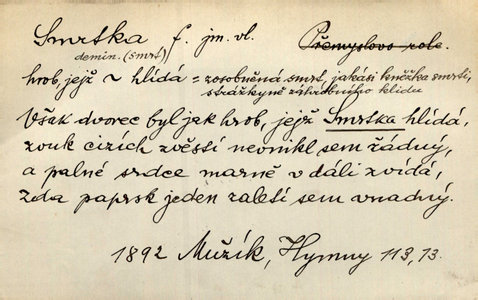 Smrtka f. jm. vl. Přemyslovo pole.
demin. (smrt)
hrob, jejž ~ hlídá = zosobněná smrt, jakási kněžka smrti,
strážkyně záhrobního klidu
Však dvorec byl jak hrob, jejž Smrtka hlídá,
zvuk cizích zvěstí nevnikl sem řádný,
a palné srdce marně v dáli zvídá,
zda paprsk jeden zaletí sem vnadný.
1892 Mužík, Hymny 113, 13.